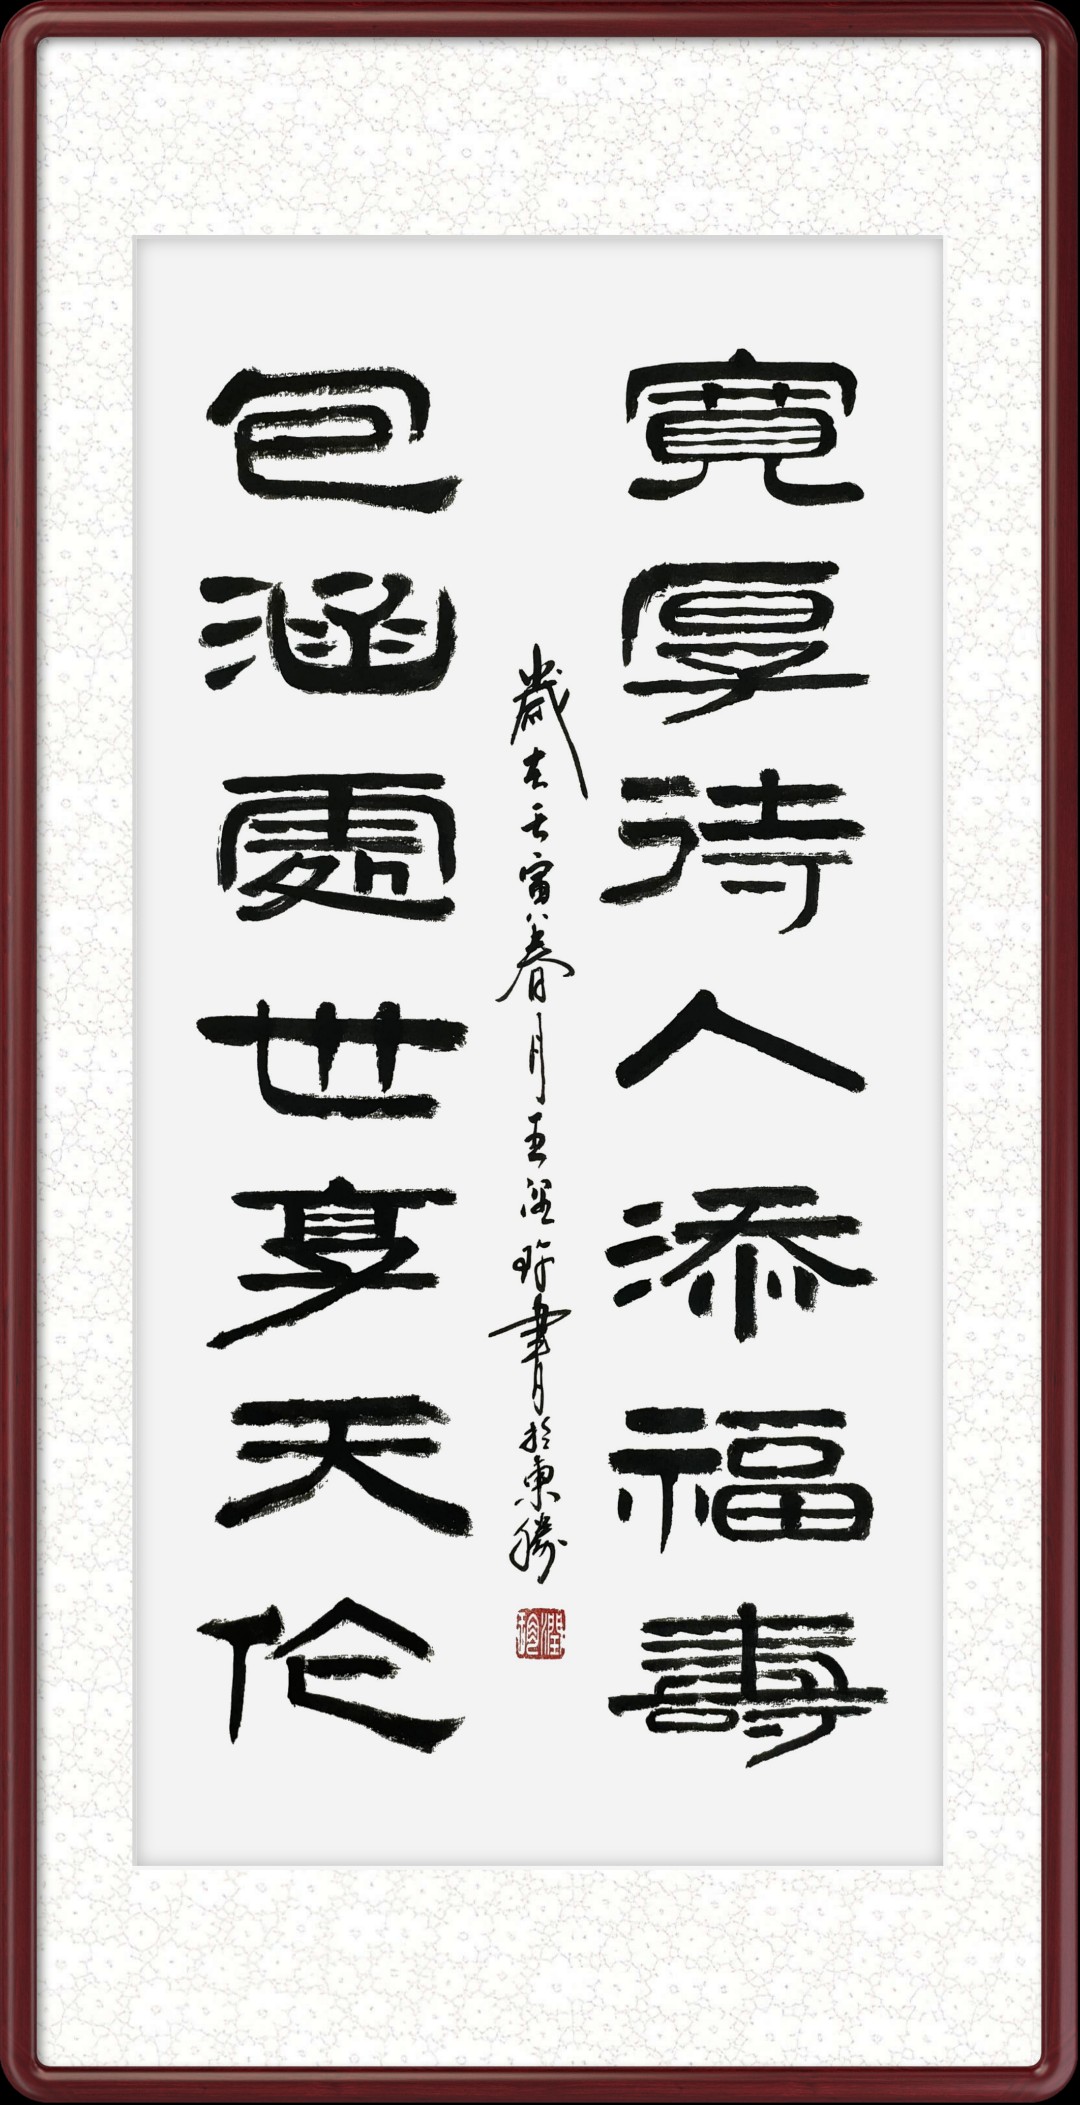 寬厚待人添福壽
包涵處世享天伦
歲在壬寅春月王潤珍書於東勝
潤珍